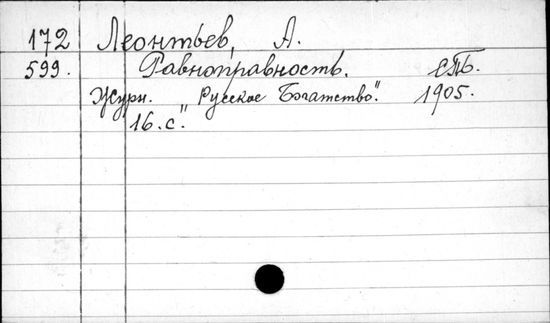 172 Леонтьев, А.
599. Равноправность. СПБ.
Журн. "Русское Богатство". 1905.
16. с.